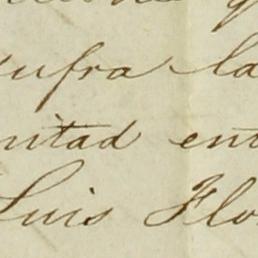 sufra la
mitad ent
Luis Flo